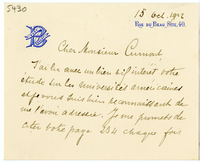 5430
15 Oct. 1902
RUE DU BEAU SITE, 40.
Cher Monsieur Cumont
J'ai lu avec un bien vif intérêt votre
étude sur les universités américaines
et vous suis bien reconnaissant de
me l'avoir adressée. Je me promets de
citer votre page 234 chaque fois